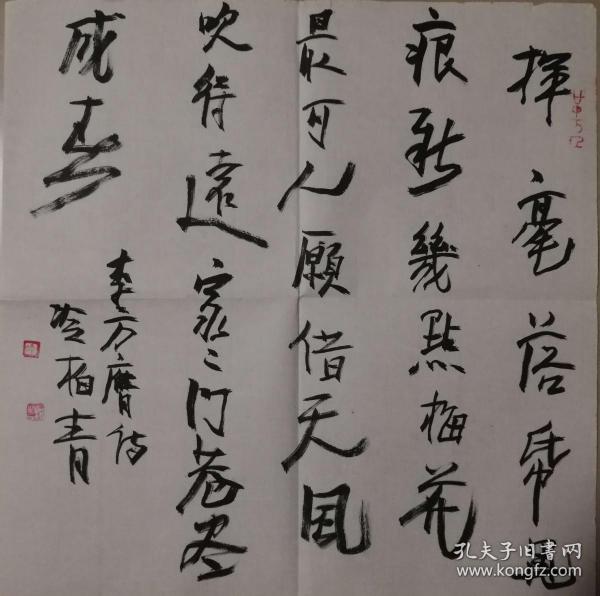 揮毫落帋墨
痕新幾點梅花
最可人願借天風
吹得遠家々門巷尽
成春
李方膺诗
冷柏青
孔夫子旧书网
www.kongfz.com